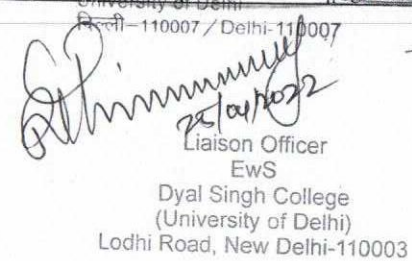 University of Delhi
दिल्ली-110007 / Delhi-110007
25/04/2022
Liaison Officer
EwS
Dyal Singh College
(University of Delhi)
Lodhi Road, New Delhi-110003